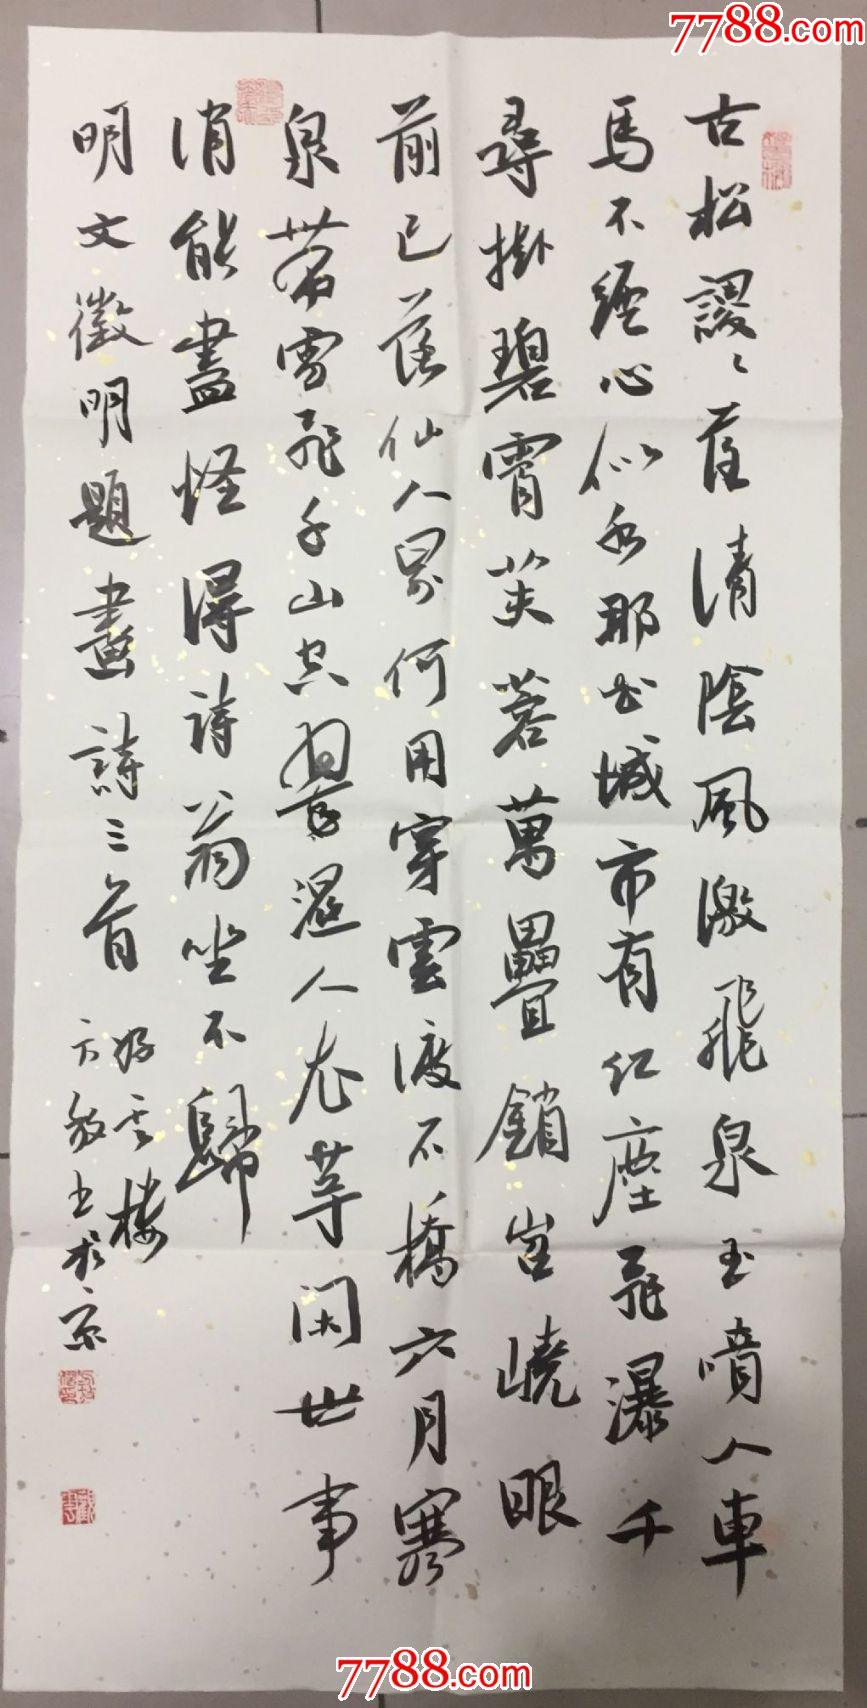 7788.com
古松謖〻薩清陰風激飛泉玉噴人車
馬不經心似水那知城市有紅塵飛瀑千
尋掛碧霄芙蓉萬疊鎖岧嶢眼
前已落仙人界何用穿雲渡石橋六月寒
泉帶雪飛千山空翠濕人衣等閑世事
消能盡怪得詩翁坐不歸
明文徵明題畫詩三首
好雲樓
方放書於京
7788.com